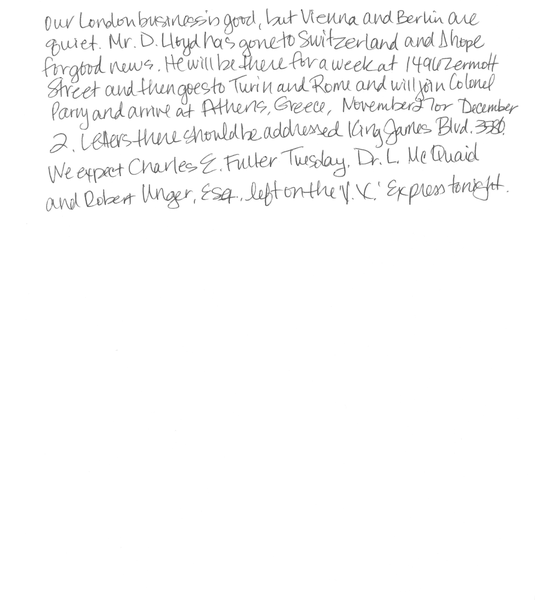 Our London business is good, but Vienna and Berlin are
quiet. Mr. D. Lloyd has gone to Switzerland and I hope
for good news. He will be there for a week at 1496 Zermott
Street and then goes to Turin and Rome and will join Colonel
Parry and arrive at Athens, Greece, November 27 or December
2. Letters there should be addressed King James Blvd. 3580.
We expect Charles E. Fuller Tuesday. Dr. L. McQuaid
and Robert Unger, Esq., left on the 'Y.X.' Express tonight.